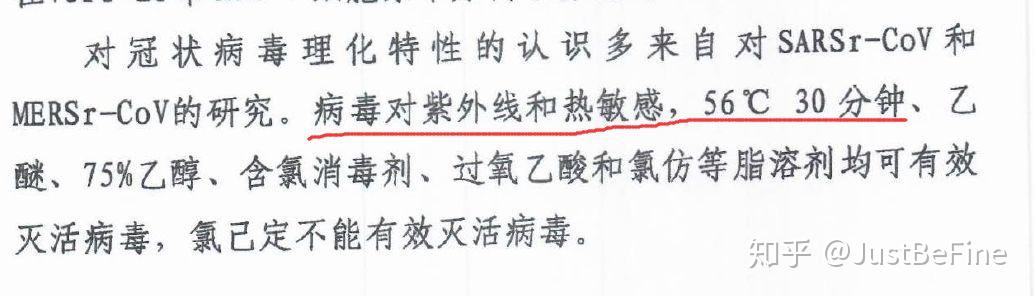 对冠状病毒理化特性的认识多来自对SARSr-CoV和
MERSr-CoV的研究。病毒对紫外线和热敏感，56℃ 30分钟、乙
醚、75%乙醇、含氯消毒剂、过氧乙酸和氯仿等脂溶剂均可有效
灭活病毒，氯己定不能有效灭活病毒。
知乎 @JustBeFine